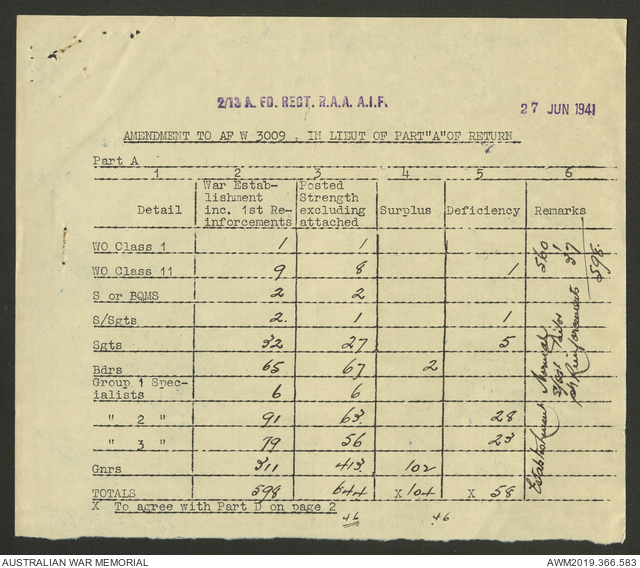 2/13 A. FD. REGT. R.A.A. A.I.F.
27 JUN 1941
AMENDMENT TO AF W 3009 . IN LIEUT OF PART"A"OF RETURN
Part A
1 2 3 4 5 6
Detail War Estab-lishment inc. 1st Re-inforcements Posted Strength excluding attached Surplus Deficiency Remarks
WO Class 1 1 1
WO Class 11 9 8 1
S or BQMS 2 2
S/Sgts 2. 1 1
Sgts 32 27 5
Bdrs 65 67 2
Group 1 Spec-
ialists 6 6
" 2 " 91 63 28
" 3 " 79 56 23
Gnrs 311 413 102
TOTALS 598 644 X 104 X 58
X To agree with Part D on page 2
46 46
Establishment Normal 560
1
Reinforcements 37
598
AUSTRALIAN WAR MEMORIAL
AWM2019.366.583